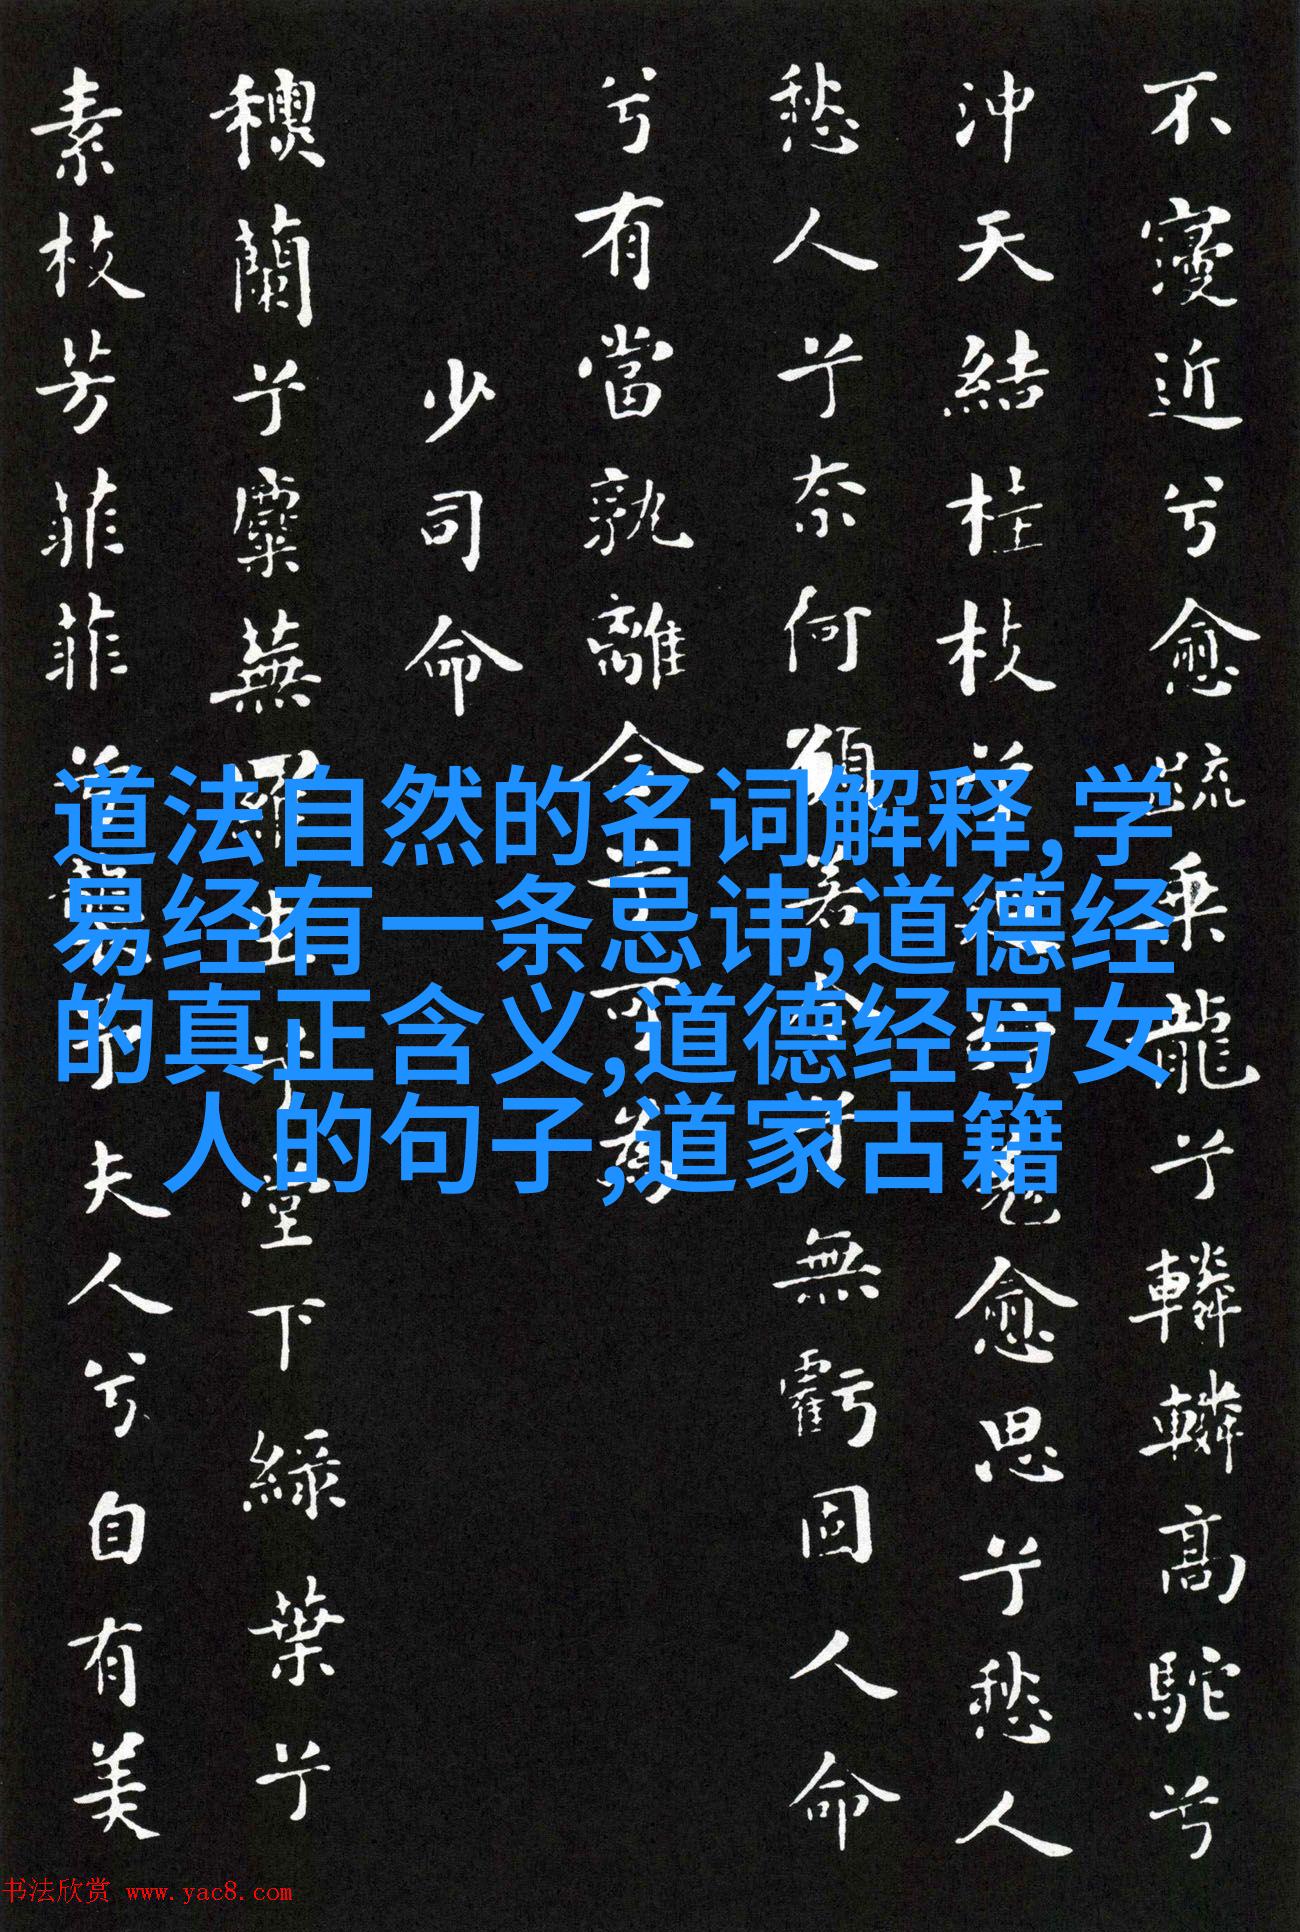 不寖近兮愈疏乘龍兮轔轔高駝兮
沖天結桂枝兮愈思兮愁人
愁人兮奈何願若今兮無虧固人命
兮有當孰離合兮可為
少司命
穮蘭兮麋蕪羅生兮堂下綠葉兮
素枝芳菲菲兮襲予夫人兮自有美
道法自然的名词解释,学
易经有一条忌讳,道德经
的真正含义,道德经写女
人的句子,道家古籍
书法欣赏 www.yac8.com